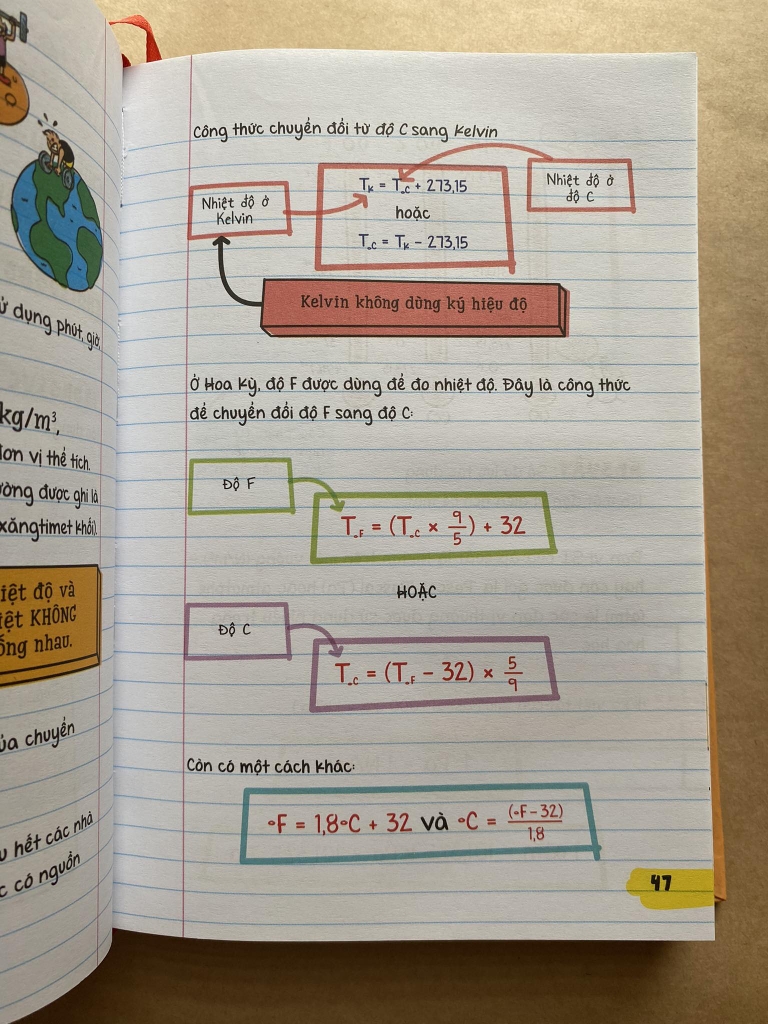 ử dụng phút, giờ,
kg/m³,
đơn vị thể tích.
ường được ghi là
xăngtimet khối).
iệt độ và
iệt KHÔNG
ống nhau.
ủa chuyển
u hết các nhà
c có nguồn
Công thức chuyển đổi từ độ C sang Kelvin
Nhiệt độ ở
Kelvin
T_K = T_°C + 273,15
hoặc
T_°C = T_K − 273,15
Nhiệt độ ở
độ C
Kelvin không dùng ký hiệu độ
Ở Hoa Kỳ, độ F được dùng để đo nhiệt độ. Đây là công thức
để chuyển đổi độ F sang độ C:
Độ F
T_°F = (T_°C × 9/5) + 32
HOẶC
Độ C
T_°C = (T_°F − 32) × 5/9
Còn có một cách khác:
°F = 1,8°C + 32 và °C = (°F − 32)/1,8
47